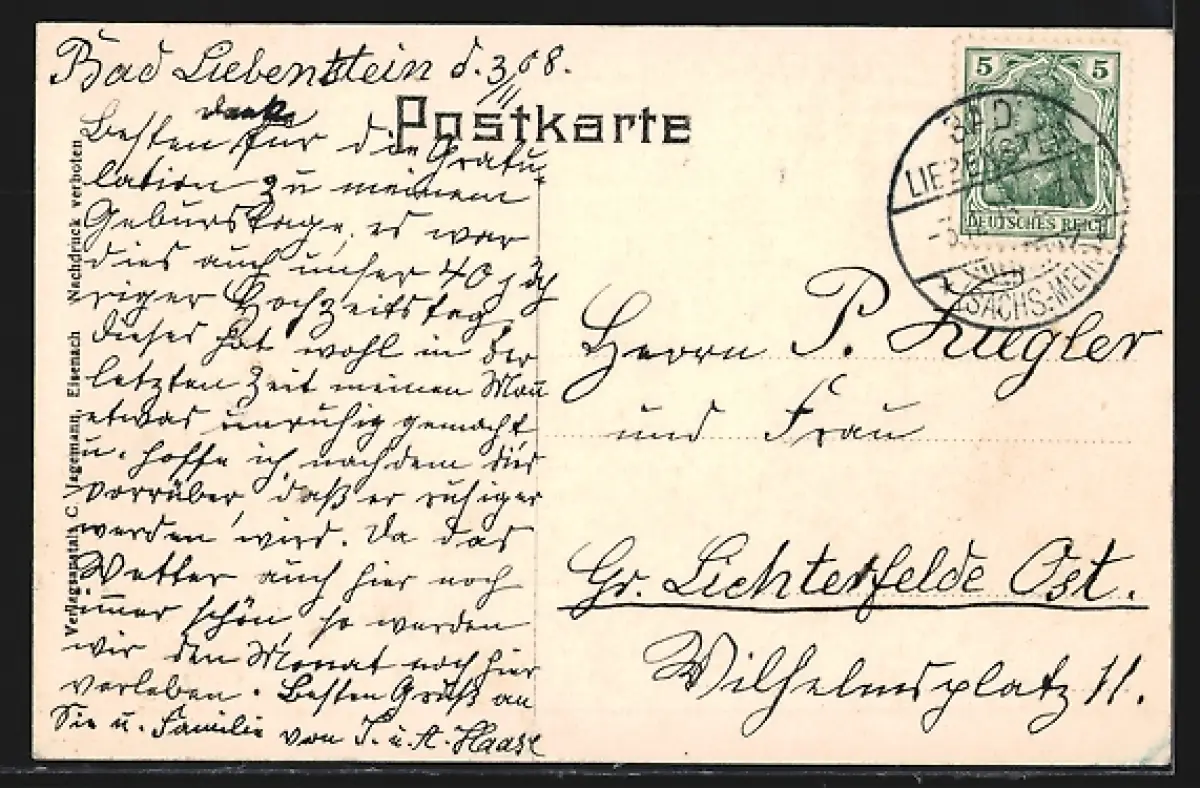 Bad Liebenstein d. 3/11 08.
Postkarte
danke
Besten für die Gratu-
lation zu meinem
Geburtstage, es war
dies auch unser 40 jäh
riger Hochzeitstag
dieses hat wohl in der
letzten Zeit meinen Mann
etwas unruhig gemacht,
u. hoffe ich, nachdem dies
vorrüber, daß er ruhiger
werden wird. Da das
Wetter auch hier noch
immer schön, so werden
wir den Monat noch hier
verleben. Besten Gruß an
Sie u. Familie von u. A. Haase
Verlagsanstalt C. Jagemann, Eisenach Nachdruck verboten
5 5
DEUTSCHES REICH
BAD
LIEBENSTEIN
SACHS.-MEIN
Herrn P. Ziegler
und Frau
Gr. Lichterfelde Ost.
Wilhelmsplatz 11.